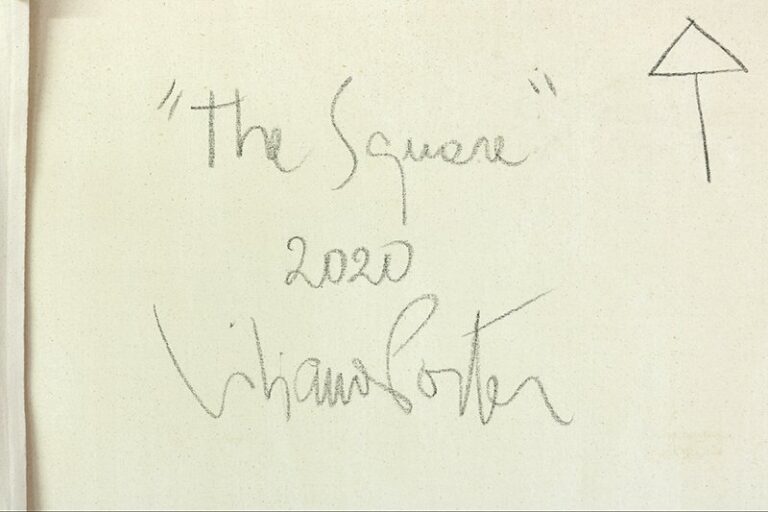 "The Square"
2020
Liliana Porter